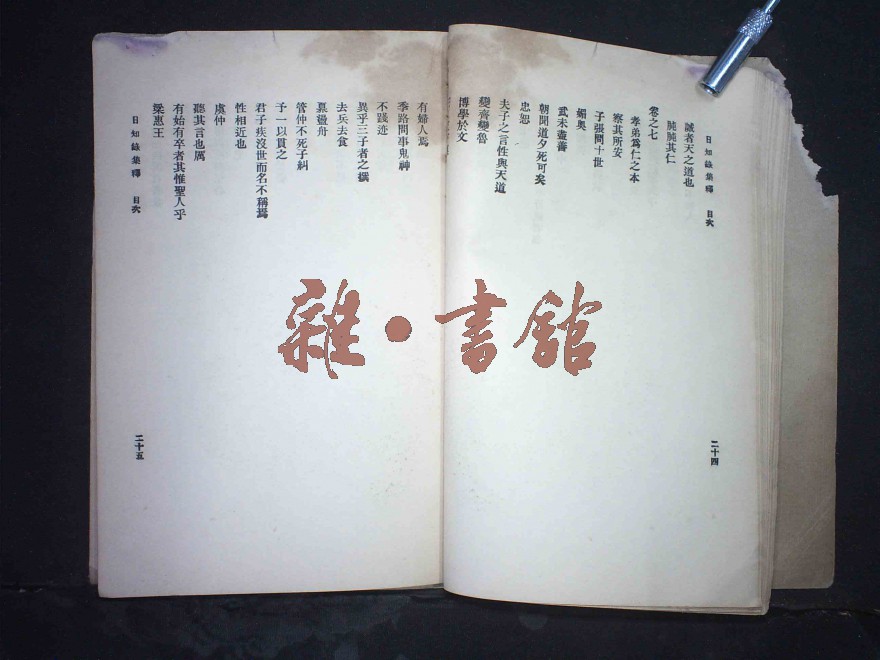 日知錄集釋 目次
誠者天之道也
肫肫其仁
卷之七
孝弟爲仁之本
察其所安
子張問十世
媚奧
武未盡善
朝聞道夕死可矣
忠恕
夫子之言性與天道
變齊變魯
博學於文
二十四
有婦人焉
季路問事鬼神
不踐迹
異乎三子者之撰
去兵去食
奡盪舟
管仲不死子糾
予一以貫之
君子疾沒世而名不稱焉
性相近也
虞仲
聽其言也厲
有始有卒者其惟聖人乎
梁惠王
日知錄集釋 目次
二十五
雜·書館